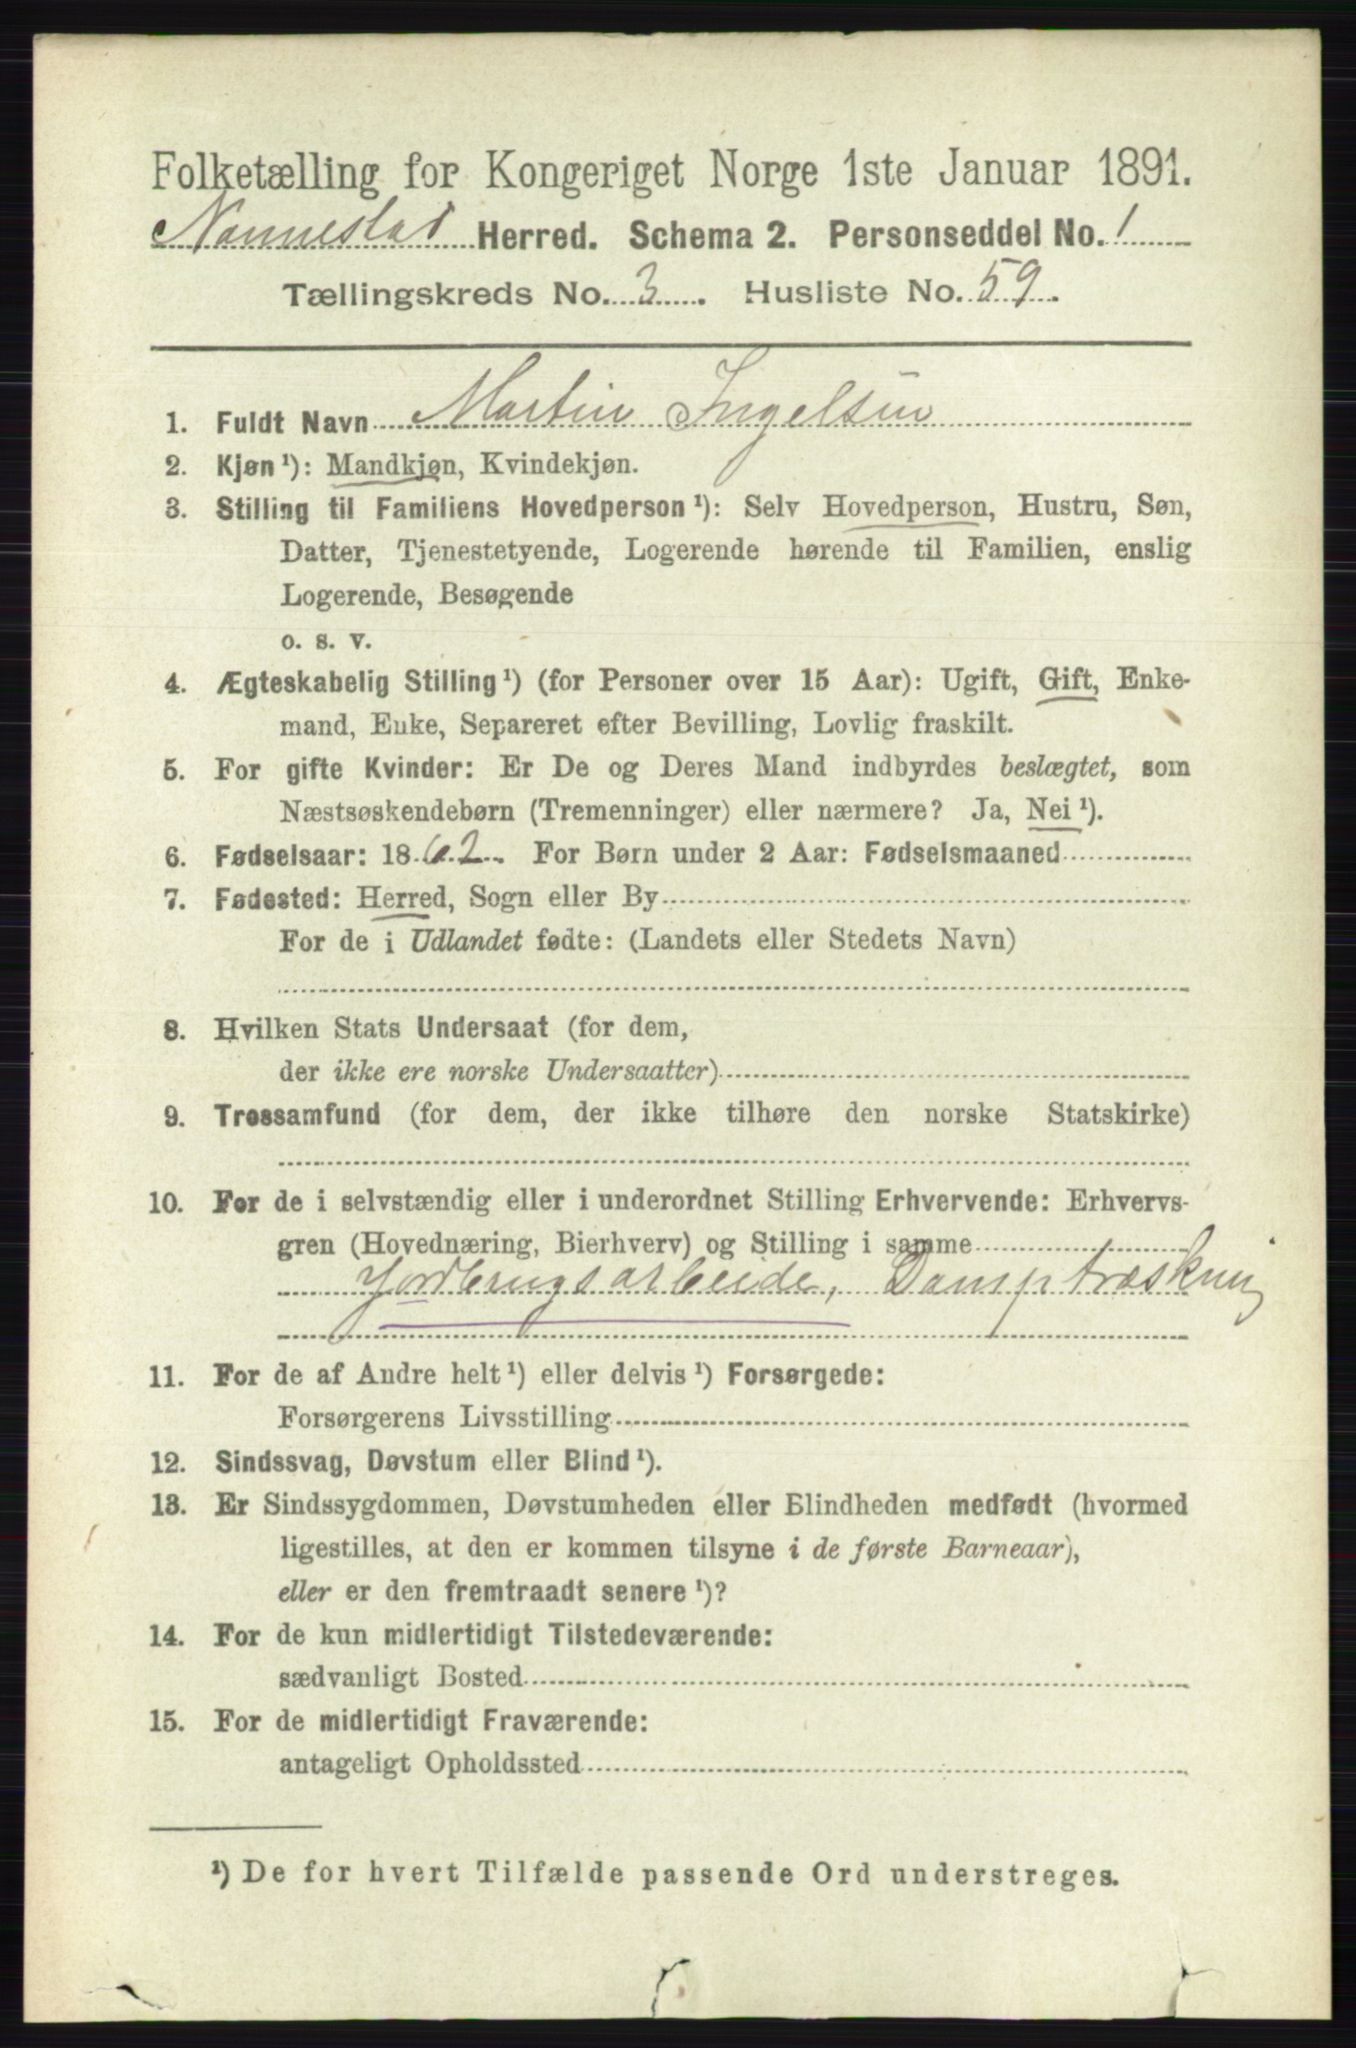 Folketælling for Kongeriget Norge 1ste Januar 1891.
Nannestad Herred. Schema 2. Personseddel No. 1
Tællingskreds No. 3. Husliste No. 59.
1. Fuldt Navn Martin Ingelsün
2. Kjøn ¹): Mandkjøn, Kvindekjøn.
3. Stilling til Familiens Hovedperson ¹): Selv Hovedperson, Hustru, Søn,
Datter, Tjenestetyende, Logerende hørende til Familien, enslig
Logerende, Besøgende
o. s. v.
4. Ægteskabelig Stilling ¹) (for Personer over 15 Aar): Ugift, Gift, Enke-
mand, Enke, Separeret efter Bevilling, Lovlig fraskilt.
5. For gifte Kvinder: Er De og Deres Mand indbyrdes beslægtet, som
Næstsøskendebørn (Tremenninger) eller nærmere? Ja, Nei ¹).
6. Fødselsaar: 1862. For Børn under 2 Aar: Fødselsmaaned
7. Fødested: Herred, Sogn eller By
For de i Udlandet fødte: (Landets eller Stedets Navn)
8. Hvilken Stats Undersaat (for dem,
der ikke ere norske Undersaatter)
9. Trossamfund (for dem, der ikke tilhøre den norske Statskirke)
10. For de i selvstændig eller i underordnet Stilling Erhvervende: Erhvervs-
gren (Hovednæring, Bierhverv) og Stilling i samme
Jordbrugsarbeide, Damptræskning
11. For de af Andre helt ¹) eller delvis ¹) Forsørgede:
Forsørgerens Livsstilling
12. Sindssvag, Døvstum eller Blind ¹).
13. Er Sindssygdommen, Døvstumheden eller Blindheden medfødt (hvormed
ligestilles, at den er kommen tilsyne i de første Barneaar),
eller er den fremtraadt senere ¹)?
14. For de kun midlertidigt Tilstedeværende:
sædvanligt Bosted
15. For de midlertidigt Fraværende:
antageligt Opholdssted
¹) De for hvert Tilfælde passende Ord understreges.